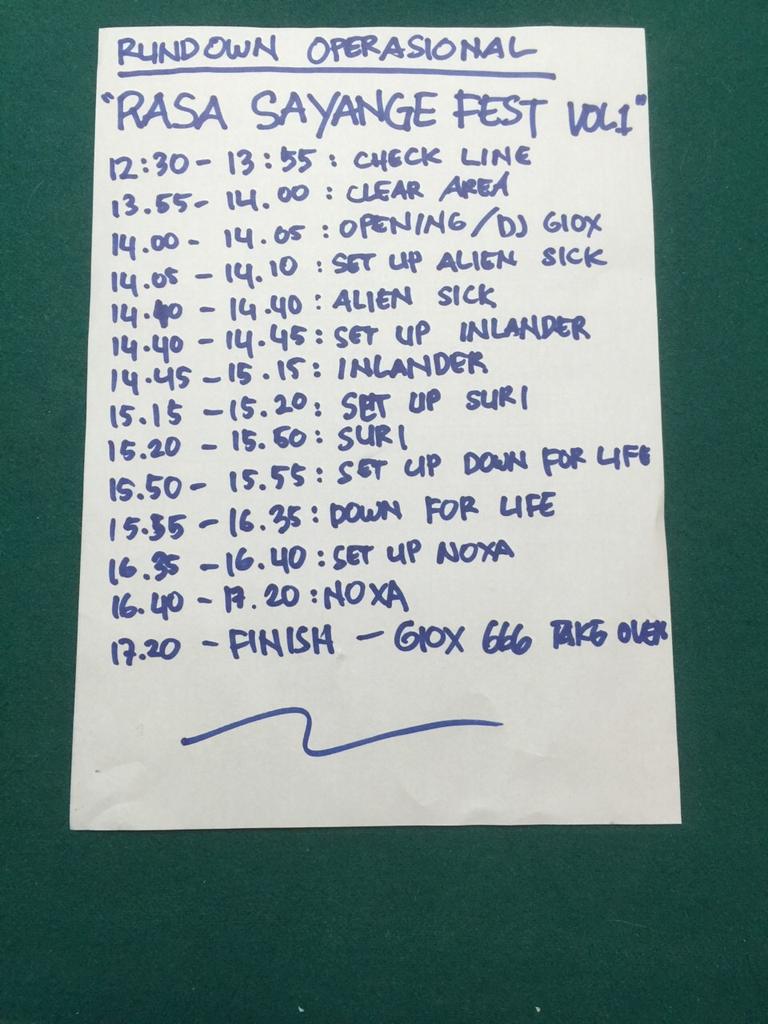 RUNDOWN OPERASIONAL
"RASA SAYANGE FEST VOL.1"
12:30 - 13:55 : CHECK LINE
13.55 - 14.00 : CLEAR AREA
14.00 - 14.05 : OPENING/DJ GIOX
14.05 - 14.10 : SET UP ALIEN SICK
14.10 - 14.40 : ALIEN SICK
14.40 - 14.45 : SET UP INLANDER
14.45 - 15.15 : INLANDER
15.15 - 15.20 : SET UP SURI
15.20 - 15.50 : SURI
15.50 - 15.55 : SET UP DOWN FOR LIFE
15.55 - 16.35 : DOWN FOR LIFE
16.35 - 16.40 : SET UP NOXA
16.40 - 17.20 : NOXA
17.20 - FINISH - GIOX 666 TAKE OVER